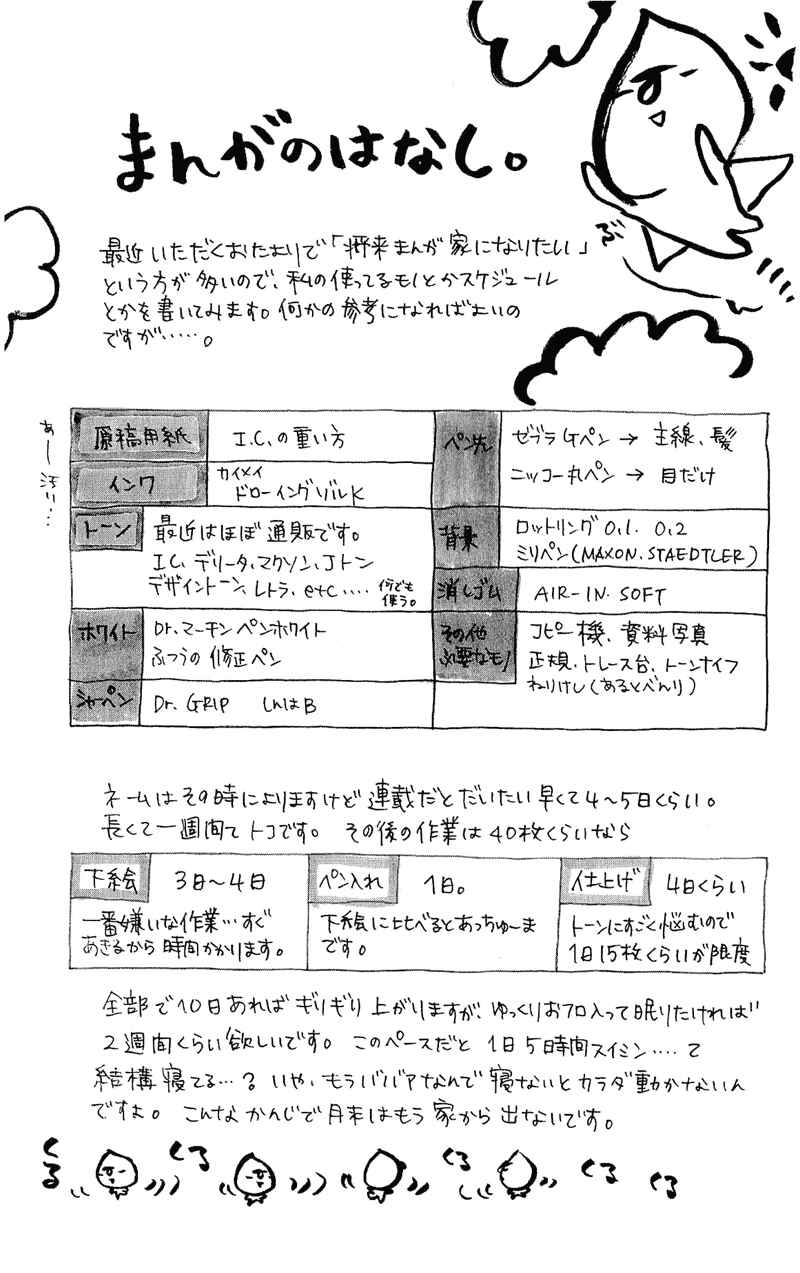 まんがのはなし。
ぶ
最近いただくおたよりで「将来まんが家になりたい」
という方が多いので、私の使ってるモノとかスケジュール
とかを書いてみます。何かの参考になればよいの
ですが……。
あー汚い…
原稿用紙
I.C.の重い方
インク
カイメイ
ドローイングゾルK
トーン
最近はほぼ通販です。
I.C、デリータ、マクソン、Jトン
デザイントーン、レトラ、etc….
何でも
使う。
ホワイト
Dr.マーチンペンホワイト
ふつうの修正ペン
シャーペン
Dr. GRIP しんはB
ペン先
ゼブラGペン → 主線、髪
ニッコー丸ペン → 目だけ
背景
ロットリング0.1. 0.2
ミリペン(MAXON.STAEDTLER)
消しゴム
AIR-IN. SOFT
その他
必要なモノ
コピー機、資料写真
正規、トレース台、トーンナイフ
ねりけし(あるとべんり)
ネームはその時によりますけど連載だとだいたい早くて4～5日くらい。
長くて一週間てトコです。その後の作業は40枚くらいなら
下絵
3日～4日
一番嫌いな作業…すぐ
あきるから時間かかります。
ペン入れ
1日。
下絵に比べるとあっちゅーま
です。
仕上げ
4日くらい
トーンにすごく悩むので
1日15枚くらいが限度
全部で10日あればギリギリ上がりますが、ゆっくりおフロ入って眠りたければ
2週間くらい欲しいです。このペースだと1日5時間スイミン….て
結構寝てる…？いや、もうババアなんで寝ないとカラダ動かないん
ですよ。こんなかんじで月末はもう家から出ないです。
くる
くる
くる
くる
くる